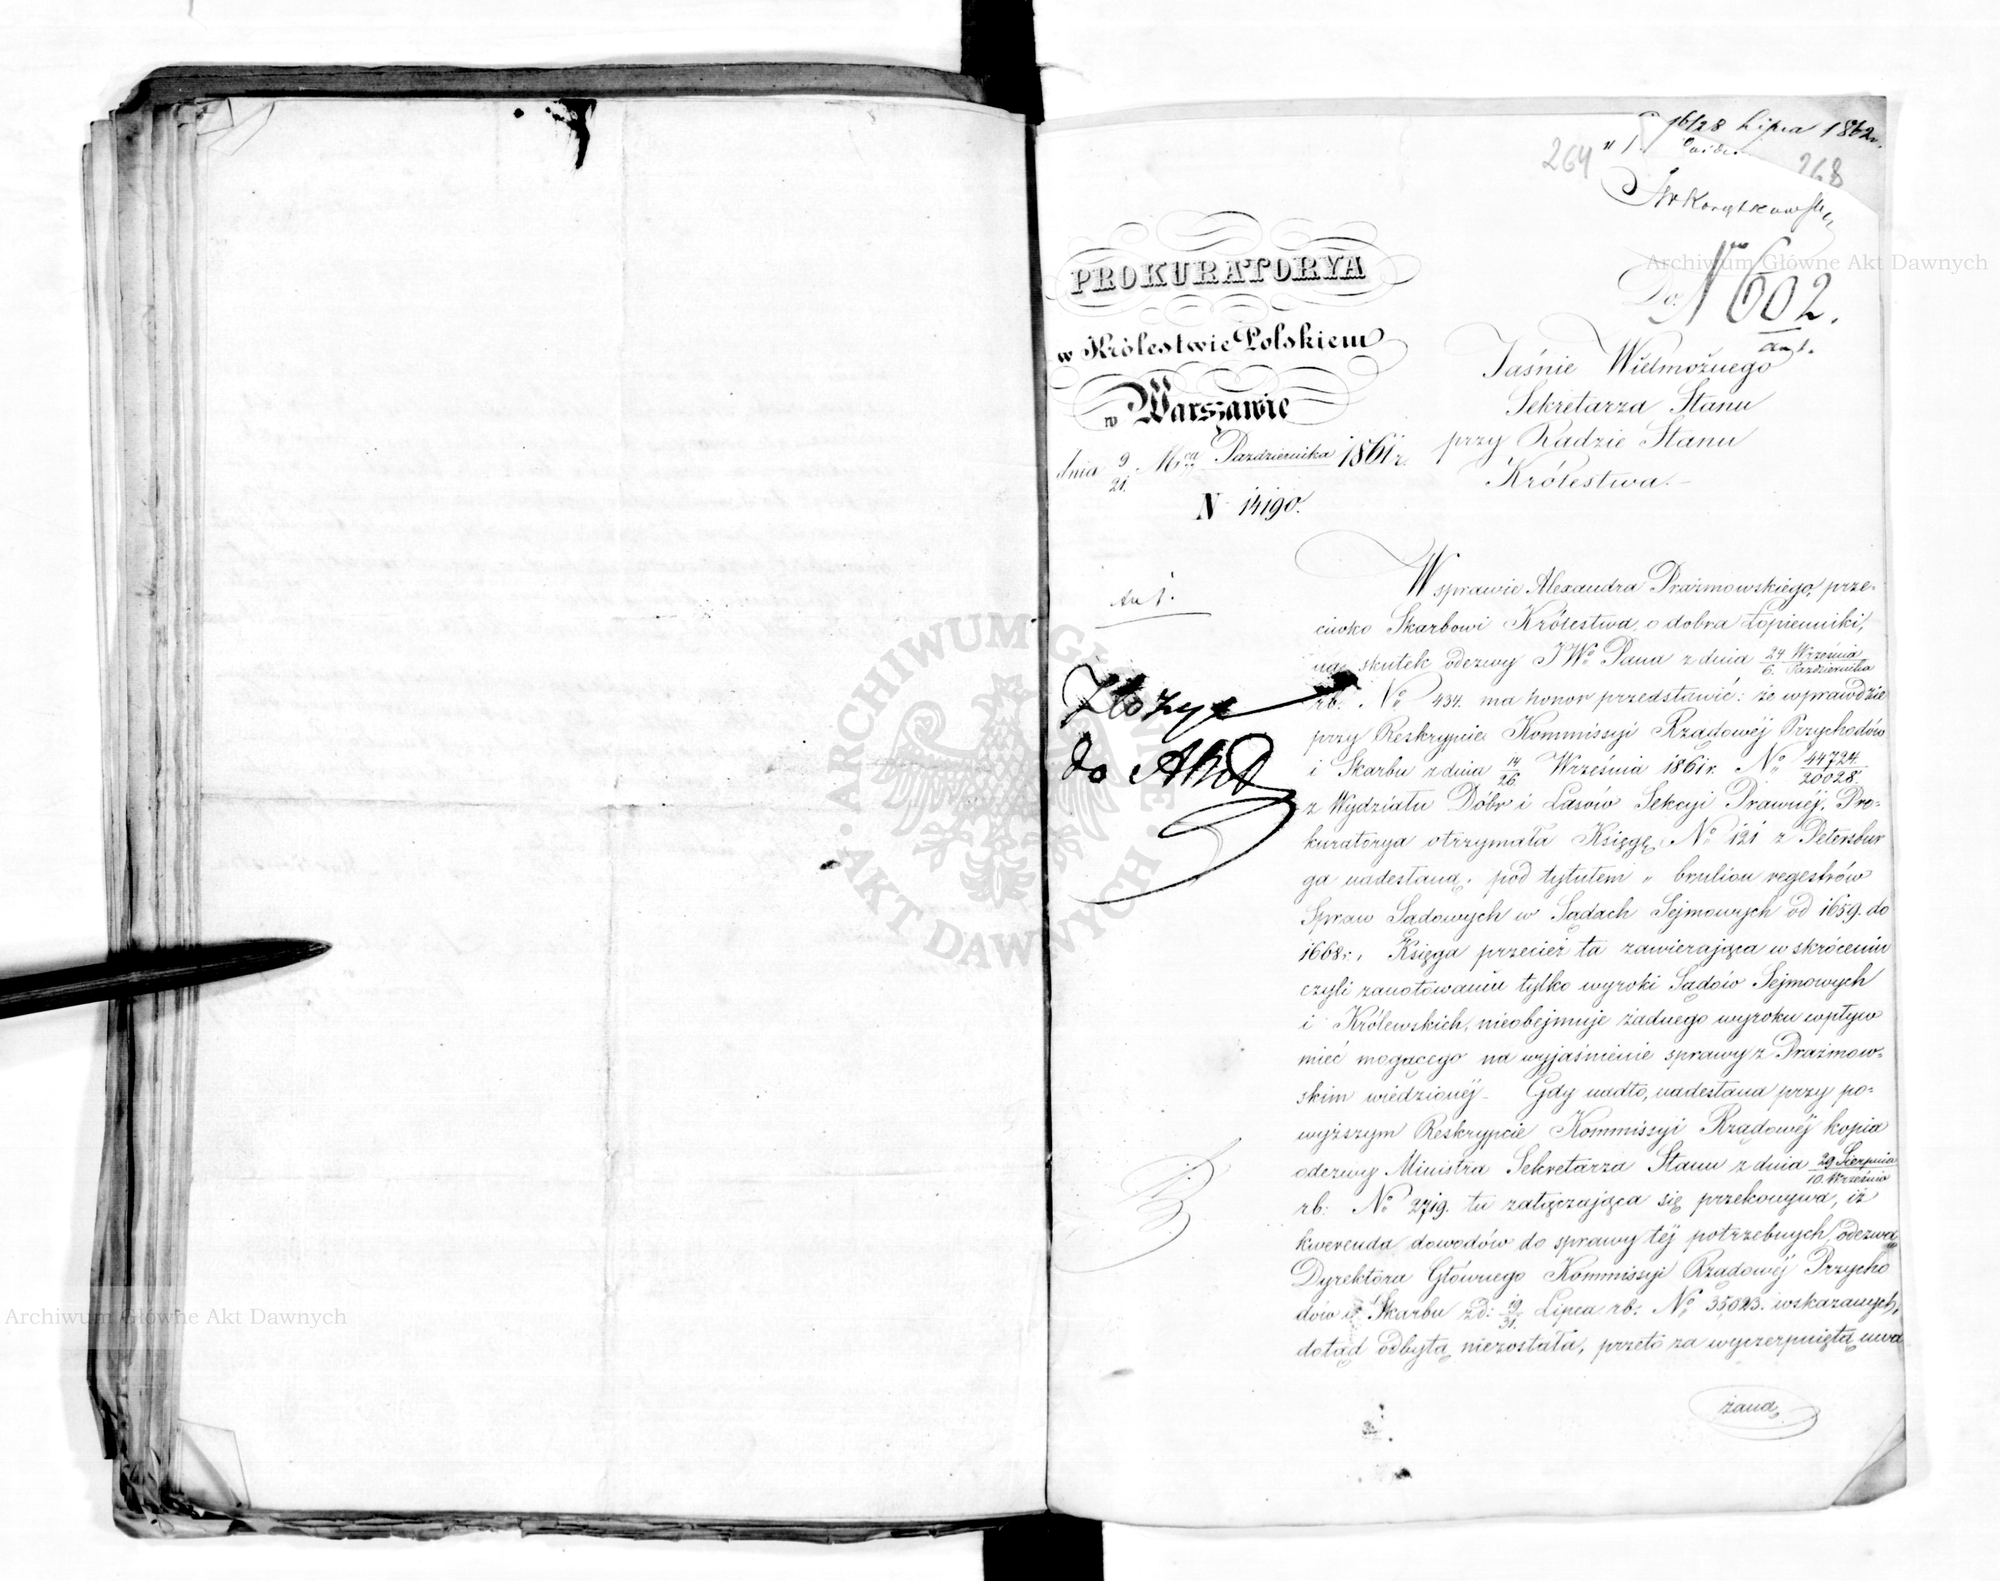 16/28 Lipca 1862 r.
264
268
PROKURATORYA
w Królestwie Polskiem
w Warszawie
dnia 9/21 M-ca Pazdziernika 1861 r.
N 14190.
Do
N 602.
Jaśnie Wielmożnego
Sekretarza Stanu
przy Radzie Stanu
Królestwa.
W sprawie Alexandra Prażmowskiego, prze-
ciwko Skarbowi Królestwa o dobra Łopienniki,
na skutek odezwy JWo Pana z dnia 24 Września/6 Października
rb. No 434. ma honor przedstawić: że wprawdzie
przy Reskrypcie Kommissyi Rządowéj Przychodów
i Skarbu z dnia 14/26 Września 1861 r. No 44724/20028.
z Wydziału Dóbr i Lasów Sekcyi Prawnéj, Pro-
kuratorya otrzymała Księgę No 121 z Petersbur
ga nadesłaną, pod tytułem „ brulion regestrów
Spraw Sądowych w Sądach Sejmowych od 1659. do
1668 r. Księga przecież ta zawierająca w skróceniu
czyli zanotowaniu tylko wyroki Sądów Sejmowych
i Królewskich, nieobejmuje żadnego wyroku wpływ
mieć mogącego na wyjaśnienie sprawy z Prażmow-
skim wiedzionéj. Gdy nadto, nadesłana przy po-
wyższym Reskrypcie Kommissyi Rządowéj kopia
odezwy Ministra Sekretarza Stanu z dnia 29 Sierpnia/10 Września
rb: No 2719. tu załączająca się przekonywa, iż
kwerenda dowodów do sprawy téj potrzebnych, odezwą
Dyrektora Głównego Kommissyi Rządowéj Przycho
dów i Skarbu z d: 19/31 Lipca rb: No 35023. wskazanych,
dotąd odbytą niezostała, przeto za wyczerpniętą uwa
żaną
Złożyć
do Akt
Archiwum Główne Akt Dawnych
Archiwum Główne Akt Dawnych
ARCHIWUM GŁÓWNE
AKT DAWNYCH